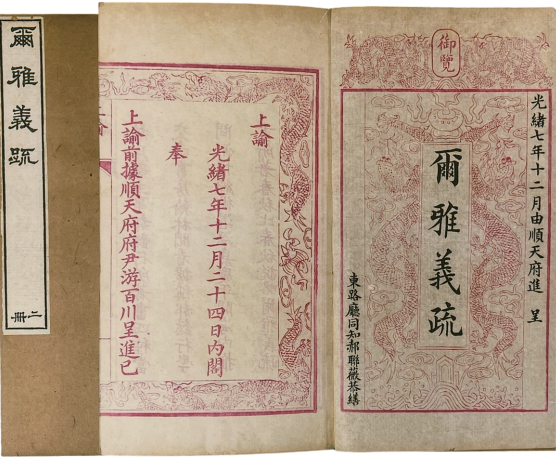 爾雅義疏
二冊
御覽
光緒七年十二月由順天府進 呈
爾雅義疏
東路廳同知郝聯薇恭繕
上諭
光緒七年十二月二十四日內閣
奉
上諭前據順天府府尹游百川呈進已